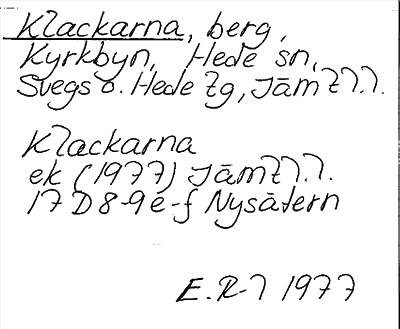 Klackarna, berg,
Kyrkbyn, Hede sn,
Svegs o. Hede tg, Jämtl.l.
Klackarna
ek (1977) Jämtl.l.
17D8-9e-f Nysätern
E.R-l 1977